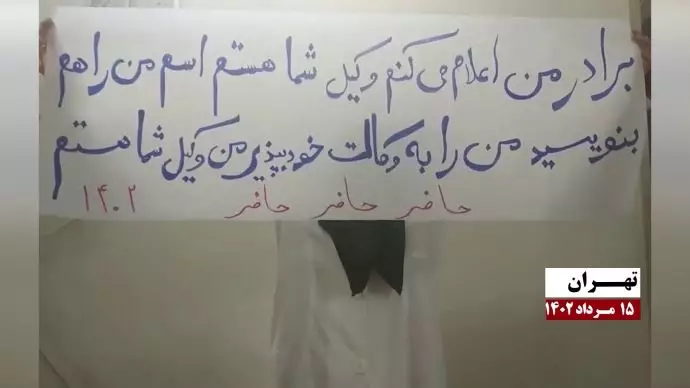 برادر من اعلام می کنم وکیل شما هستم اسم من را هم
بنویسید من را به وکالت خود بپذیر من وکیل شما هستم
حاضر حاضر حاضر ۱۴۰۲
تهران
۱۵ مرداد ۱۴۰۲